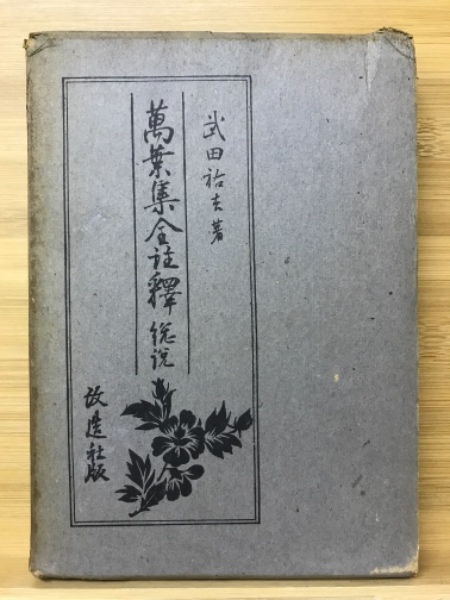 武田祐吉著
萬葉集全註釋 総説
改造社版